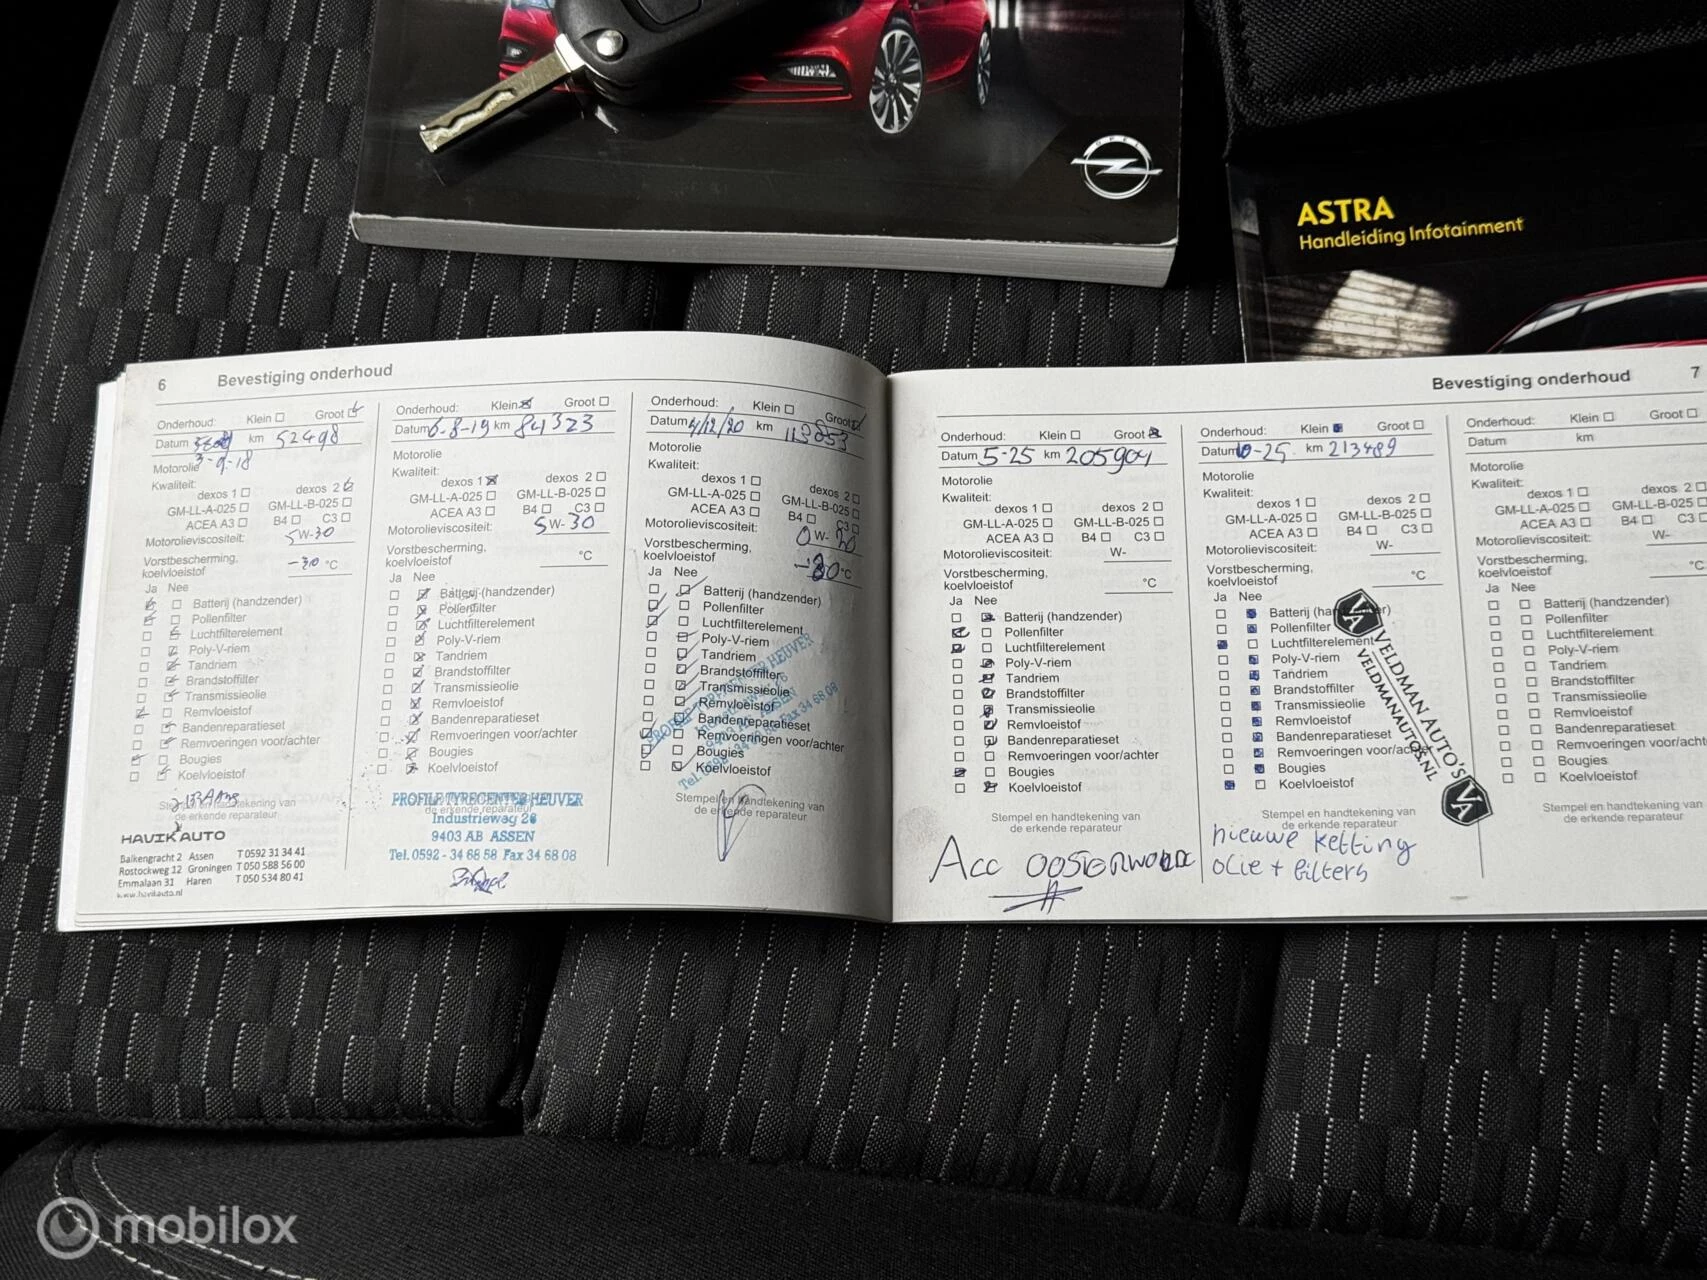 OPEL
ASTRA
Handleiding Infotainment
6 Bevestiging onderhoud
Onderhoud: Klein Groot
Datum km 52498
3-9-18
Motorolie
Kwaliteit:
dexos 1 dexos 2
GM-LL-A-025 GM-LL-B-025
ACEA A3 B4 C3
Motorolieviscositeit: 5W-30
Vorstbescherming,
koelvloeistof -30 °C
Ja Nee
Batterij (handzender)
Pollenfilter
Luchtfilterelement
Poly-V-riem
Tandriem
Brandstoffilter
Transmissieolie
Remvloeistof
Bandenreparatieset
Remvoeringen voor/achter
Bougies
Koelvloeistof
Stempel en handtekening van
HAVIK AUTO
Balkengracht 2 Assen T 0592 31 34 41
Rostockweg 12 Groningen T 050 588 56 00
Emmalaan 31 Haren T 050 534 80 41
www.havikauto.nl
Onderhoud: Klein Groot
Datum 6-8-19 km 84323
Motorolie
Kwaliteit:
dexos 1 dexos 2
GM-LL-A-025 GM-LL-B-025
ACEA A3 B4 C3
Motorolieviscositeit: 5W-30
Vorstbescherming,
koelvloeistof °C
Ja Nee
Batterij (handzender)
Pollenfilter
Luchtfilterelement
Poly-V-riem
Tandriem
Brandstoffilter
Transmissieolie
Remvloeistof
Bandenreparatieset
Remvoeringen voor/achter
Bougies
Koelvloeistof
PROFILE TYRECENTER HEUVER
de erkende reparateur
Industrieweg 26
9403 AB ASSEN
Tel. 0592 - 34 68 58 Fax 34 68 08
Onderhoud: Klein Groot
Datum 4/12/20 km 113853
Motorolie
Kwaliteit:
dexos 1 dexos 2
GM-LL-A-025 GM-LL-B-025
ACEA A3 B4 C3
Motorolieviscositeit: 0W-
Vorstbescherming,
koelvloeistof °C
Ja Nee
Batterij (handzender)
Pollenfilter
Luchtfilterelement
Poly-V-riem
Tandriem
Brandstoffilter
Transmissieolie
Remvloeistof
Bandenreparatieset
Remvoeringen voor/achter
Bougies
Koelvloeistof
PROFILE TYRECENTER HEUVER
Stempel en handtekening van
de erkende reparateur
Bevestiging onderhoud 7
Onderhoud: Klein Groot
Datum 5-25 km 205904
Motorolie
Kwaliteit:
dexos 1 dexos 2
GM-LL-A-025 GM-LL-B-025
ACEA A3 B4 C3
Motorolieviscositeit: W-
Vorstbescherming,
koelvloeistof °C
Ja Nee
Batterij (handzender)
Pollenfilter
Luchtfilterelement
Poly-V-riem
Tandriem
Brandstoffilter
Transmissieolie
Remvloeistof
Bandenreparatieset
Remvoeringen voor/achter
Bougies
Koelvloeistof
Stempel en handtekening van
de erkende reparateur
Acc OOSTERWOLDE
Onderhoud: Klein Groot
Datum 10-25 km 213489
Motorolie
Kwaliteit:
dexos 1 dexos 2
GM-LL-A-025 GM-LL-B-025
ACEA A3 B4 C3
Motorolieviscositeit: W-
Vorstbescherming,
koelvloeistof °C
Ja Nee
Batterij (handzender)
Pollenfilter
Luchtfilterelement
Poly-V-riem
Tandriem
Brandstoffilter
Transmissieolie
Remvloeistof
Bandenreparatieset
Remvoeringen voor/achter
Bougies
Koelvloeistof
VA VELDMAN AUTO'S VA
VELDMANAUTOS.NL
Stempel en handtekening van
de erkende reparateur
nieuwe ketting
olie + filters
Onderhoud: Klein Groot
Datum km
Motorolie
Kwaliteit:
dexos 1 dexos 2
GM-LL-A-025 GM-LL-B-025
ACEA A3 B4 C3
Motorolieviscositeit: W-
Vorstbescherming,
koelvloeistof °C
Ja Nee
Batterij (handzender)
Pollenfilter
Luchtfilterelement
Poly-V-riem
Tandriem
Brandstoffilter
Transmissieolie
Remvloeistof
Bandenreparatieset
Remvoeringen voor/achter
Bougies
Koelvloeistof
Stempel en handtekening van
de erkende reparateur
mobilox